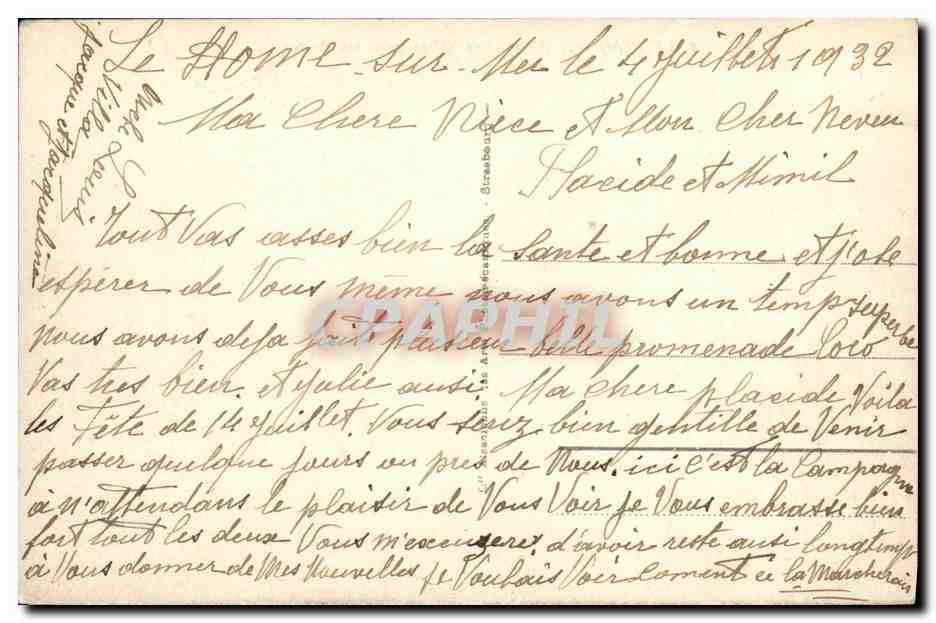 Le Home sur Mer le 4 Juillet 1932
Ma Chere Niece et Mon Cher Neveu
Placide et Mimil
Tout Vas asses bien la Sante et bonne et j'ose
espérer de Vous meme nous avons un temp superbe
nous avons deja fait plusieur belle promenade Coco
Vas tres bien et Julie ausi Ma chere placide Voila
les Fête de 14 Juillet. Vous serez bien gentille de Venir
passer quelque jours au pres de Nous. ici c'est la Campagne
à n'attendans le plaisir de Vous Voir je Vous embrasse bien
fort tout les deux Vous m'excuserez d'avoir reste ausi longtemps
à Vous donner de Mes Nouvelles je Voulais Voir coment ce la Marcherais
Vila Louis
Jacque et Jacqueline
CPARPHIL
Strasbourg